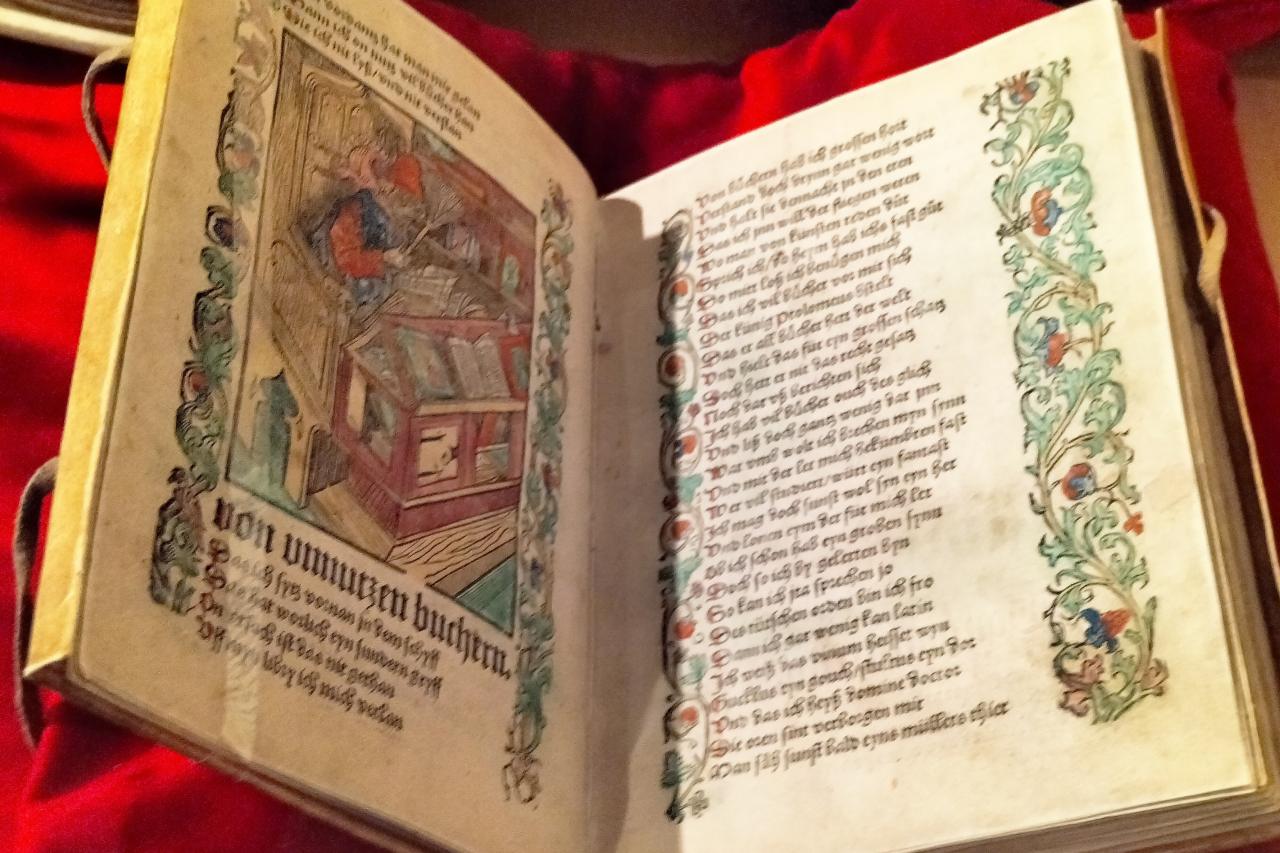 vordantz hat man mir gelan
Dann ich on nutz vil bücher han
Die ich nit lyß / vnd nit verstan
Von vnnutzen buchern.
Das ich sytz vornan jn dem schyff
Das hat worlich eyn sundern gryff
On vrsach ist das nit gethan
Vff libry ich mich verlan
Von büchern hab ich grossen hort
Verstand doch drynn gar wenig wort
Vnd halt sie dennacht jn den eren
Das ich jnn will der fliegen weren
Wo man von künsten reden důt
Sprich ich / do heym hab ichs fast gůt
Do mitt loß ich benůgen mich
Das ich vil bücher vor mir sich
Der künig Ptolomeus bstelt
Das er all bücher hett der welt
Vnd hielt das für eyn grossen schatz
Doch hett er nit das recht gesatz
Noch dar vß berichten sich
Ich hab vil bücher ouch des glich
Vnd liß doch gantz wenig dar jnn
War vmb wolt ich brechen myn synn
Vnd mit der ler mich bekumbren fast
Wer vil studiert / würt eyn fantast
Ich mag doch sunst wol syn eyn her
Vnd lonen eym der für mich ler
Ob ich schon hab eyn groben synn
Doch so ich by gelerten byn
So kan ich jta sprechen jo
Des tütschen orden bin ich fro
Dann ich gar wenig kan latin
Ich weiß das vinum heisset wyn
Gucklus eyn gouch / stultus eyn dor
Vnd das ich heyß domine doctor
Die oren sint verborgen mir
Man säh sunst bald eyns müllers thier